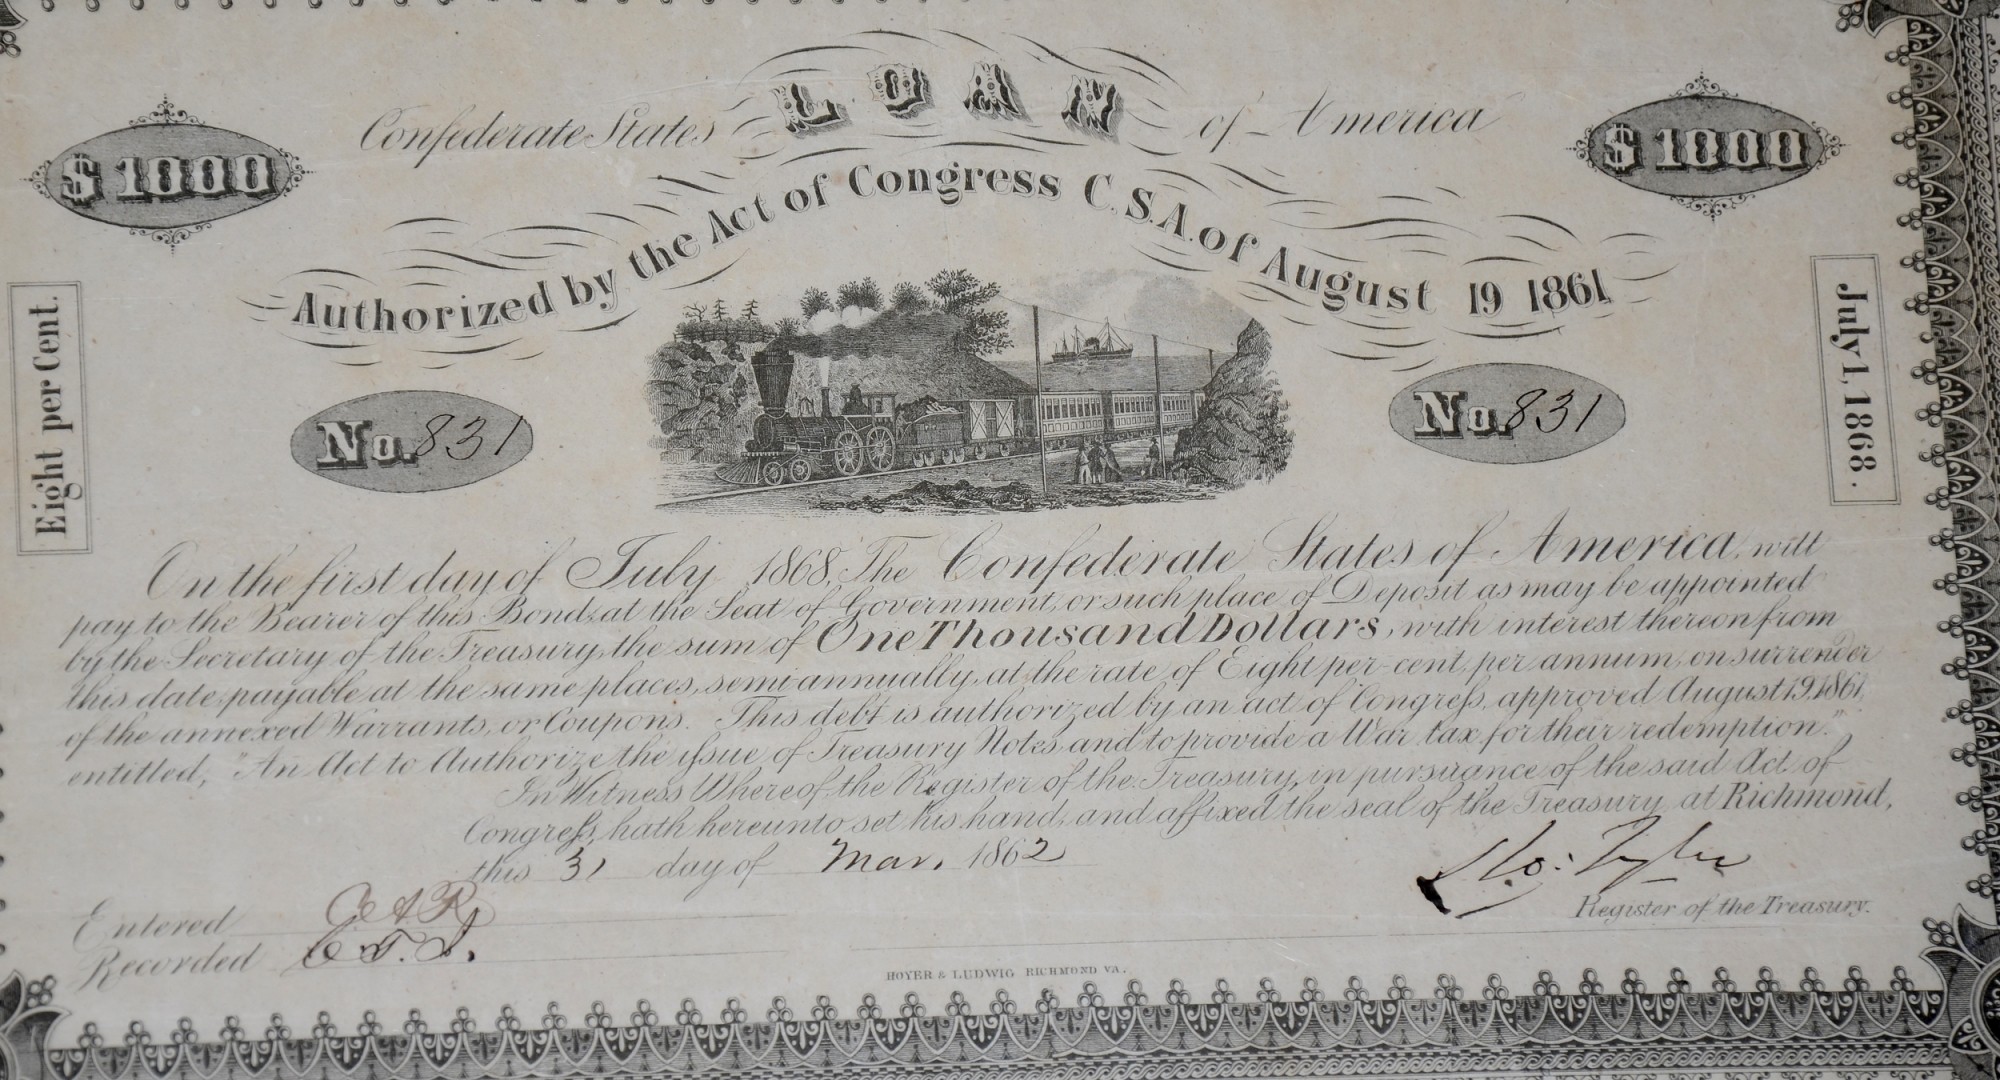 LOAN
Confederate States of America
$1000 $1000
Authorized by the Act of Congress C.S.A. of August 19 1861
Eight per Cent.
July 1, 1868.
No. 831 No. 831
On the first day of July 1868, The Confederate States of America, will
pay to the Bearer of this Bond, at the Seat of Government, or such place of Deposit as may be appointed
by the Secretary of the Treasury, the sum of One Thousand Dollars, with interest thereon from
this date, payable at the same places, semi-annually, at the rate of Eight per-cent, per annum, on surrender
of the annexed Warrants, or Coupons. This debt is authorized by an act of Congress, approved August 19, 1861,
entitled, "An Act to Authorize the issue of Treasury Notes, and to provide a War tax for their redemption."
In Witness Whereof the Register of the Treasury, in pursuance of the said Act of
Congress, hath hereunto set his hand, and affixed the seal of the Treasury at Richmond,
this 31 day of Mar. 1862
Ro: Tyler
Register of the Treasury.
Entered
Recorded
HOYER & LUDWIG RICHMOND VA.